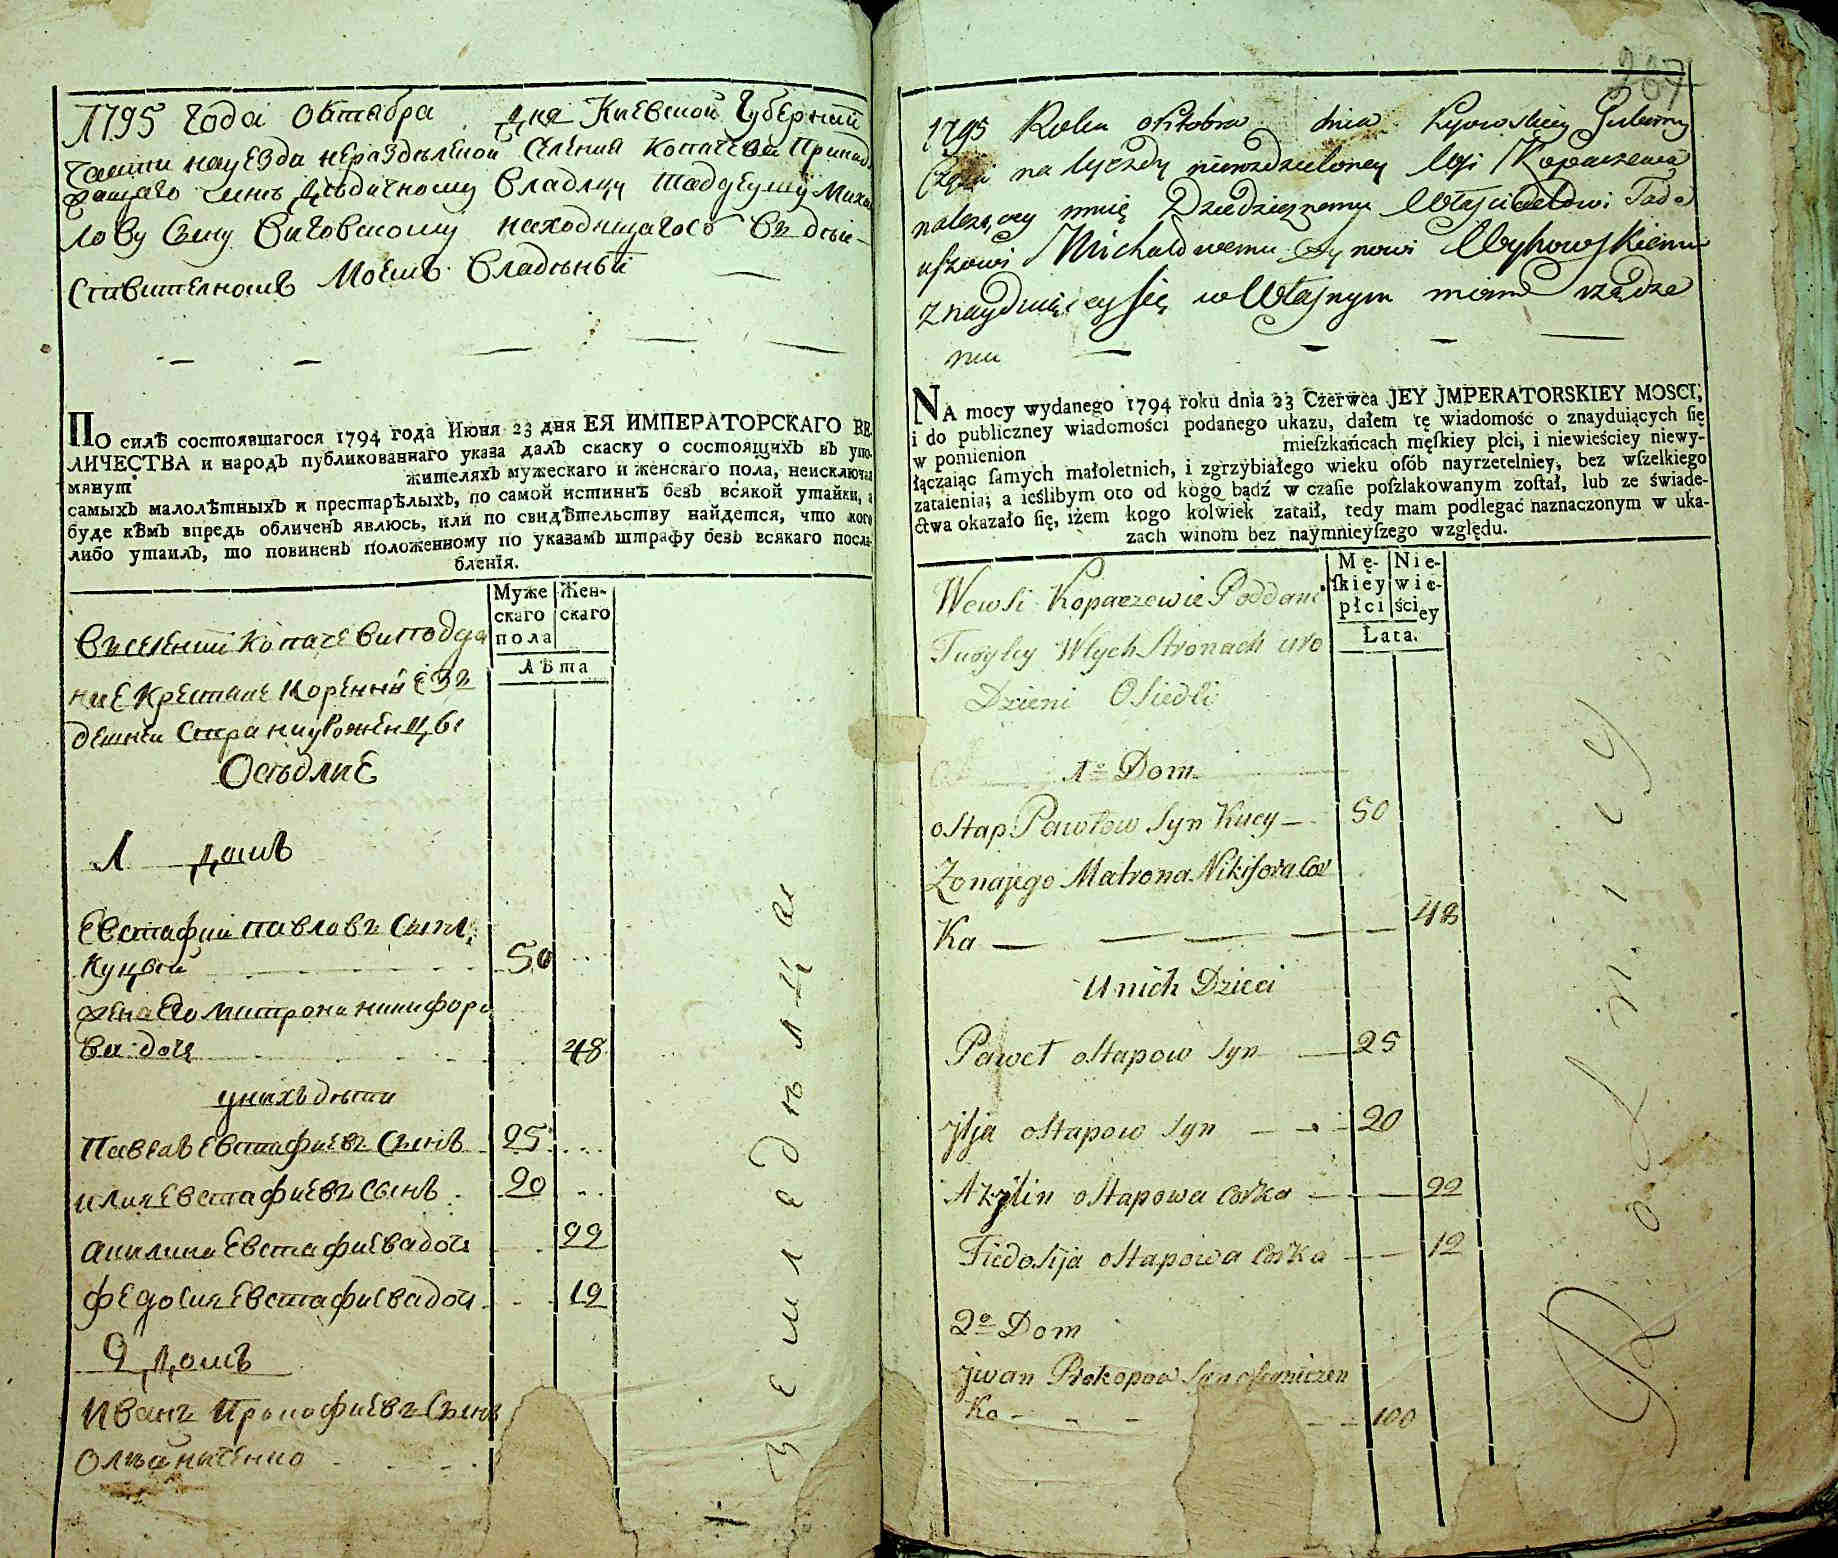 1795 Года Октября дня Киевской Губернии
части на уезда нераздѣленой Селения Копачева Принад
жащаго чинъ Дѣдичному Владлцу Тадеушу Михаи
лову Сыну Виговскому находящагось въ дѣй-
ствителномъ Моемъ Владѣнъи —
По силѣ состоявшагося 1794 года Июня 23 дня ЕЯ ИМПЕРАТОРСКАГО ВЕ-
ЛИЧЕСТВА и народъ публикованнаго указа далъ скаску о состоящихъ въ упо-
мянут жителяхъ мужескаго и женскаго пола, неисключая
самыхъ малолѣтныхъ и престарѣлыхъ, по самой истиннѣ безъ всякой утайки, а
буде кѣмъ впредь обличенъ явлюсь, или по свидѣтельству найдется, что кого
либо утаилъ, то повиненъ положенному по указамъ штрафу безъ всякаго посла-
бленія.
Муже скаго пола Жен- скаго
Лѣта
Въ селении Копачеви подда
ние Крестяне Корении Езъ
дешнеи Страни уроженцы
Осѣдлие
1 домъ
Евстафии павловъ Сынъ
Куцый 50
жена Его Матрона никифоро
ва доч 48
унихъ дѣти
Павелъ Евстафиевъ Сынъ 25
илия Евстафиевъ Сынъ 20
акилина Евстафиева доч 22
федосия Евстафиева доч 12
2 домъ
Иванъ Прокофиевъ Сынъ
Олѣйниченко
земледѣлца
267
1795 Roku oktobra dnia Kyowskiey Guberny
Części na Uyezdy nierozdzieloney Wsi Kopaczewa
należącey mnię Dziedzicznemu Włascicielowi Tade
uszowi Michałowemu Synowi Wyhowskiemu
znayduiącey się w Własnym moim rządze
niu —
NA mocy wydanego 1794 roku dnia 23 Czerwca JEY JMPERATORSKIEY MOSCI,
i do publiczney wiadomości podanego ukazu, dałem tę wiadomość o znayduiących ſię
w pomienion mieſzkańcach męſkiey płci, i niewieściey niewy-
łączaiąc ſamych małoletnich, i zgrzybiałego wieku oſób nayrzetelniey, bez wſzelkiego
zataienia; a ieślibym oto od kogo bądź w czaſie poſzlakowanym zoſtał, lub ze świade-
ctwa okazało ſię, iżem kogo kolwiek zataił, tedy mam podlegać naznaczonym w uka-
zach winom bez naymnieyſzego względu.
Mę- ſkiey płci Nie- wie- ściey
Lata.
Wewsi Kopaczewie Poddani
Tuoyley Wtych Stronach uro
Dzieni Osiedli
1o Dom
ostap Pawłow Syn Kucy — 50
Zonajego Matrona Nikiforowa Cor
Ka — 48
U nich Dzieci
Paweł ostapow Syn — 25
jlja ostapow Syn — 20
Akylin ostapowa Corka — 22
Fiedosija ostapowa Corka — 12
2o Dom
jwan Prokopow Syn oleyniczen
Ko — 100
Rolnicy